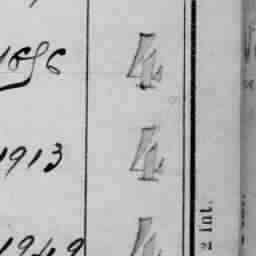 1696 4
1913 4
1949 4
21 Int.